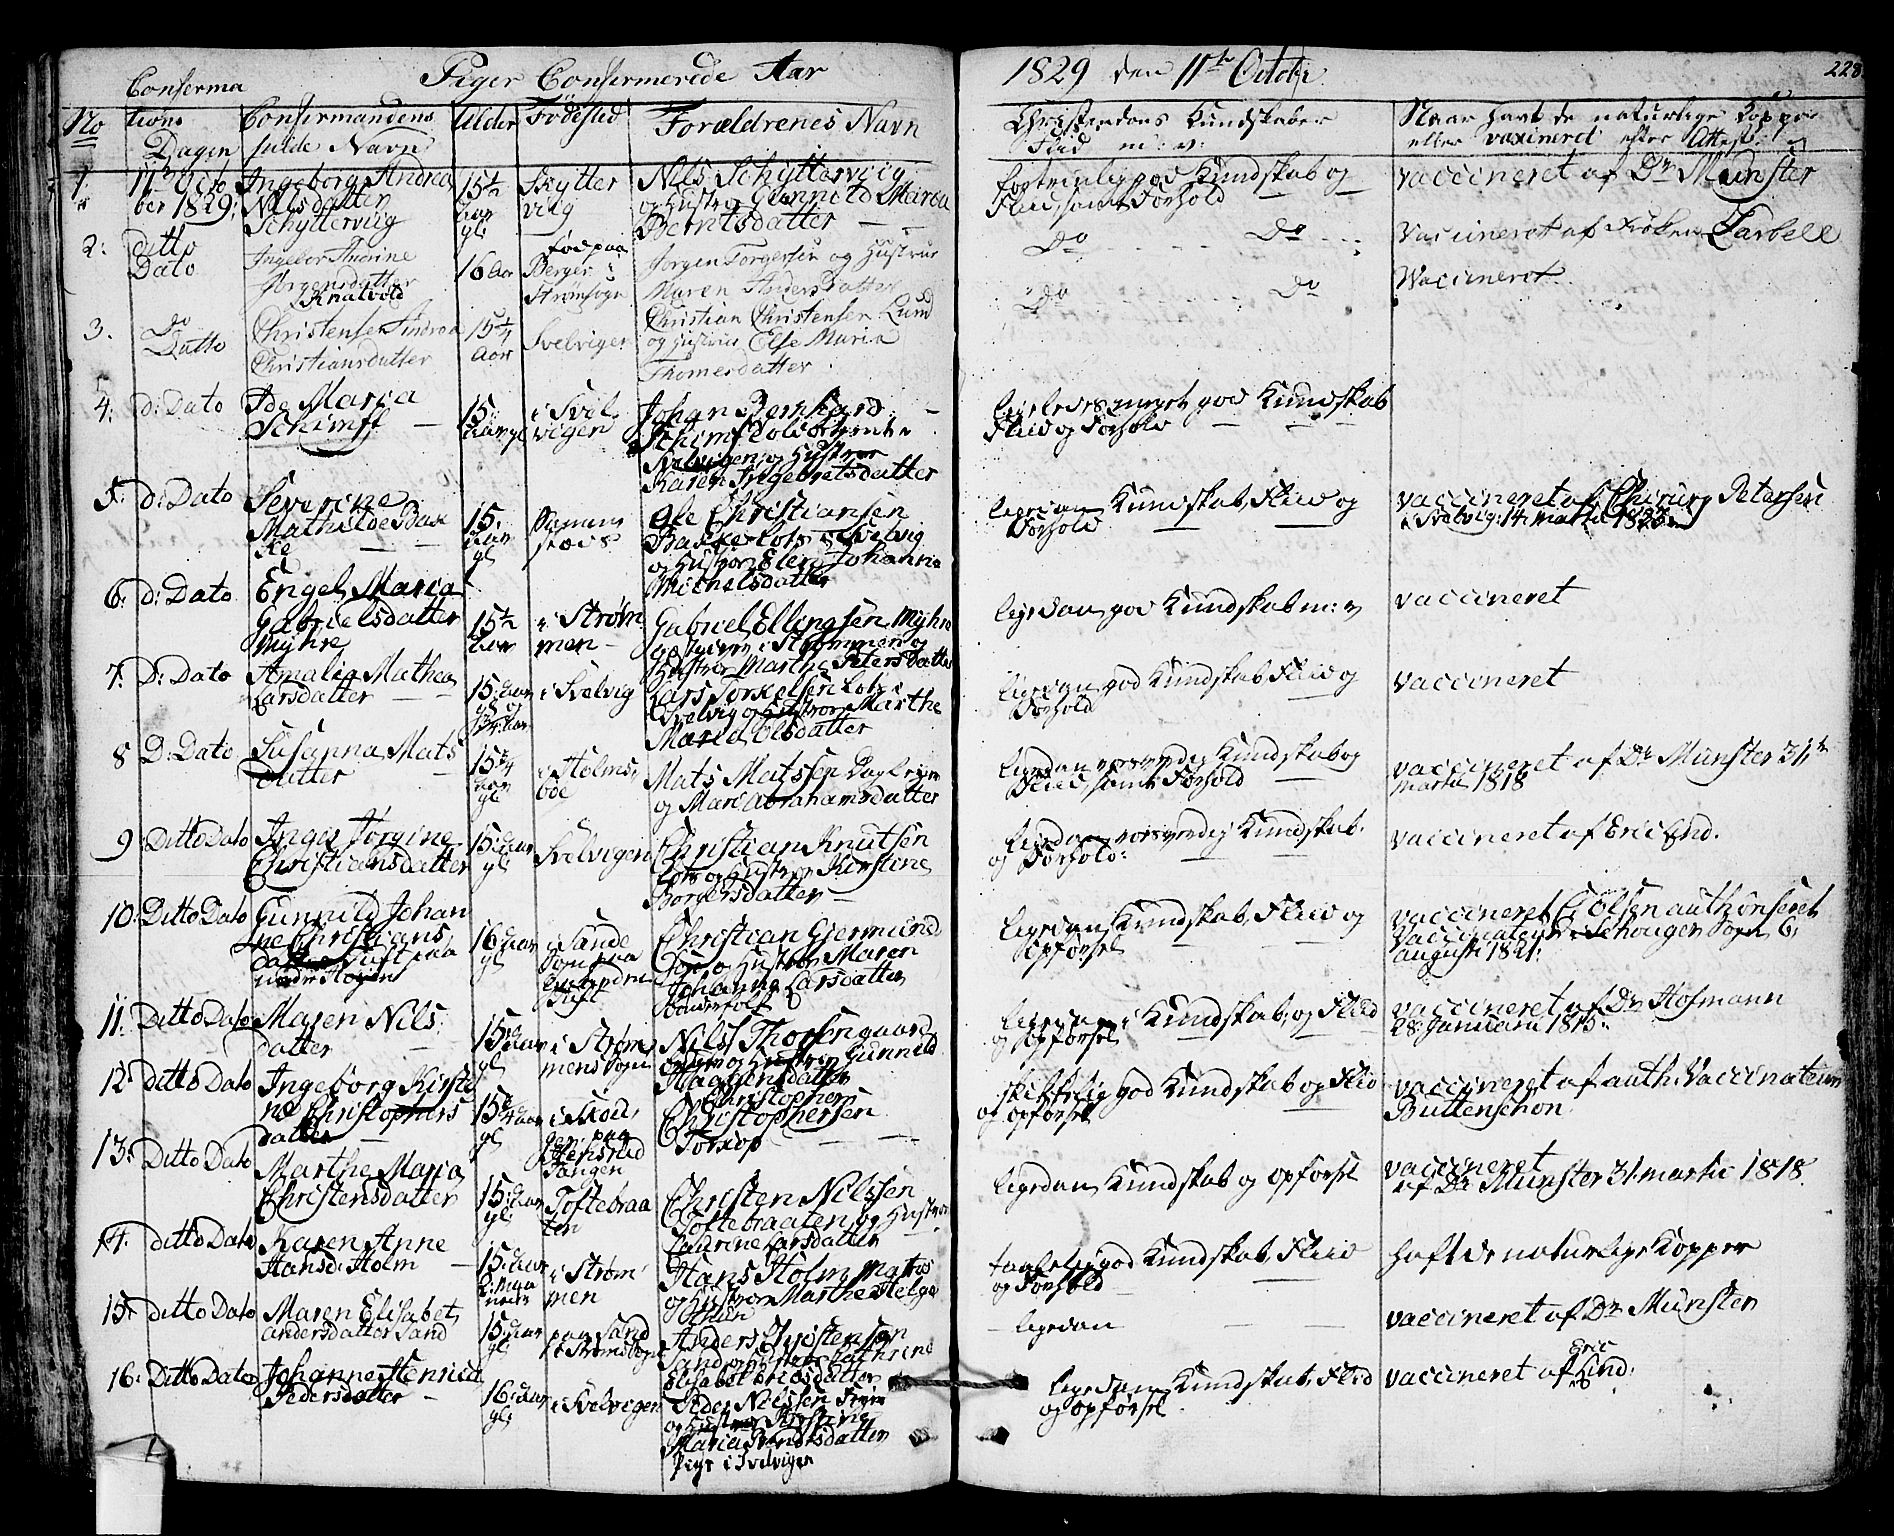 Piger Confermerede Aar 1829 den 11te Octobr.
228
No
Conferma
tions
Dagen
Confirmandens
fulde Navn
Alder
Fødested
Forældrenes Navn
Christendoms Kundskaber
Flid m: v:
Naar havt de naturlige Kopper
eller vaxineret efter Attest:
1.
11te Octo
ber 1829:
Ingeborg Andrea
Nilsdatter
Schyttervig
15½
Aar
gl:
Skytter
vig
Nils Schyttervig
og Hustro Gunnild Maria
Berntsdatter
fortrinlig god Kundskab og
Fliid, samt Forhold
vaccineret af Dr Munster
2:
ditto
Dato
Ingebor Andrine
Jørgensdatter
Knatvold
16 Aar
fød paa
Berger i
Strømsogn
Jørgen Torgersen og Hustrue
Maren Andersdatter
Do Do
Vaccineret af Frøken Zarbell
3.
Do
Datto
Christense Andrea
Christiansdatter
15¼
Aar
Svelvigen
Christian Christensen Lund
og Hustrue Else Maria
Thomesdatter
Do Do
Vaccineret
4:
d: Dato
Ide Maria
Schimff
15:
Aar gl
i Svel
vigen
Johan Bernhard
Schimf
Svelvigen og Hustroe
Karen Ingebretsdatter
ligeledes meget god Kundskab
Fliid og Forhold
5:
d: Dato
Severine
Mathilde Bak
ke
15:
Aar
gl
Samme
stæds
Ole Christiansen
Bakke Lots i Svelvig
og Hustroe Elen Johanne
Michelsdatter
ligedan Kundskab, Fliid og
Forhold
vaccineret af Chirurg Petersen
i Svelvig: 14 martii
6:
d: Dato
Engel Maria
Gabrielsdatter
Myhre
15½
Aar
i Strøm
men
Gabriel Ellingsen Myhre
i Strømmen og
Hustroe Marthe Petersdatter
ligedan god Kundskab m: v
vaccineret
7:
D: Dato
Amalia Mathea
Larsdatter
15: Aar
i Svelvig
Lars Torkelsen Lots i
Svelvig og Hustroe Marthe
Maria Olsdatter
ligedan god Kundskab Fliid og
Forhold
vaccineret
8
D: Dato
Susanna Mats
datter
15¾
Aar
gl
i Holms
boe
Mats Matssen
og Mari Abrahamsdatter
ligedan Kundskab og
Fliid, samt Forhold
vaccineret af Dr Munster 31te
martii 1818
9
Ditto Dato
Inger Jørgine
Christiansdatter
15: Aar
gl:
Svelvigen
Christian Knutsen
Lots og Hustroe Kirstine
Borgersdatter
ligedan Kundskab
og Forhold:
vaccineret af Eric Lind.
10:
Ditto Dato
Gunnild Johan
ne Christians
datter Tuft paa
16 Aar
gl
i Sande
Sogn paa
Tuft
Christian Gjermund
og Hustroe Maren
Johanne Larsdatter
Bonderfolk
ligedan Kundskab, Fliid og
Opførsel
vaccineret C: Olsen authoriseret
Vaccinateur i Schouger Sogn 6:
augusti 1821:
11:
Ditto Dato
Maren Nils
datter
15: Aar
gl:
i Strøm
mens Sogn
Nils Thorsengaard
og Hustroe Gunnild
Haagensdatter
ligedan i Kundskab, og Fliid
og Opførsel
vaccineret af Dr Hofmann
28 Januarii 1815:
12
Ditto Dato
Ingeborg Kirsti
ne Christophers
datter
15¾ Aar
gl
i Skou
ger paa
Tangen
Christophersen
Torsop
skikkelig god Kundskab og Fliid
og opførsel
vaccineret af auth: Vaccinateur
Buttenschon
13:
Ditto Dato
Marthe Maria
Christensdatter
15: Aar
gl:
Toftebraa
ten
Christen Nilssen
Toftebraaten og Hustroe
Laurine Larsdatter
ligedan Kundskab og opførsel
vaccineret
af Dr Munster 31 martii 1818
14.
ditto Dato
Karen Anne
Hansd: Holm
15: Aar
i Strøm
men
Hans Holm Matros
og Hustroe Marthe Helge
taalelig god Kundskab, Fliid
og Forhold
haft de naturlige Kopper
15:
ditto Dato
Maren Elisabet
andersdatter Sand
15: Aar
gl:
paa Sand
i Strøms Sogn
Anders Christensen
Sand og Hustroe Cathrine
Elisabet Ericsdatter
ligedan
vaccineret af Dr Munster
16:
Ditto Dato
Johanne Henrica
Pedersdatter
16: Aar
gl:
i Svelvigen
Peder Nilssen
og Hustroe Kirstine
Maria Berndtsdatter
i Svelvigen
ligedan Kundskab, Fliid
og opførsel
vaccineret af Eric Lind: